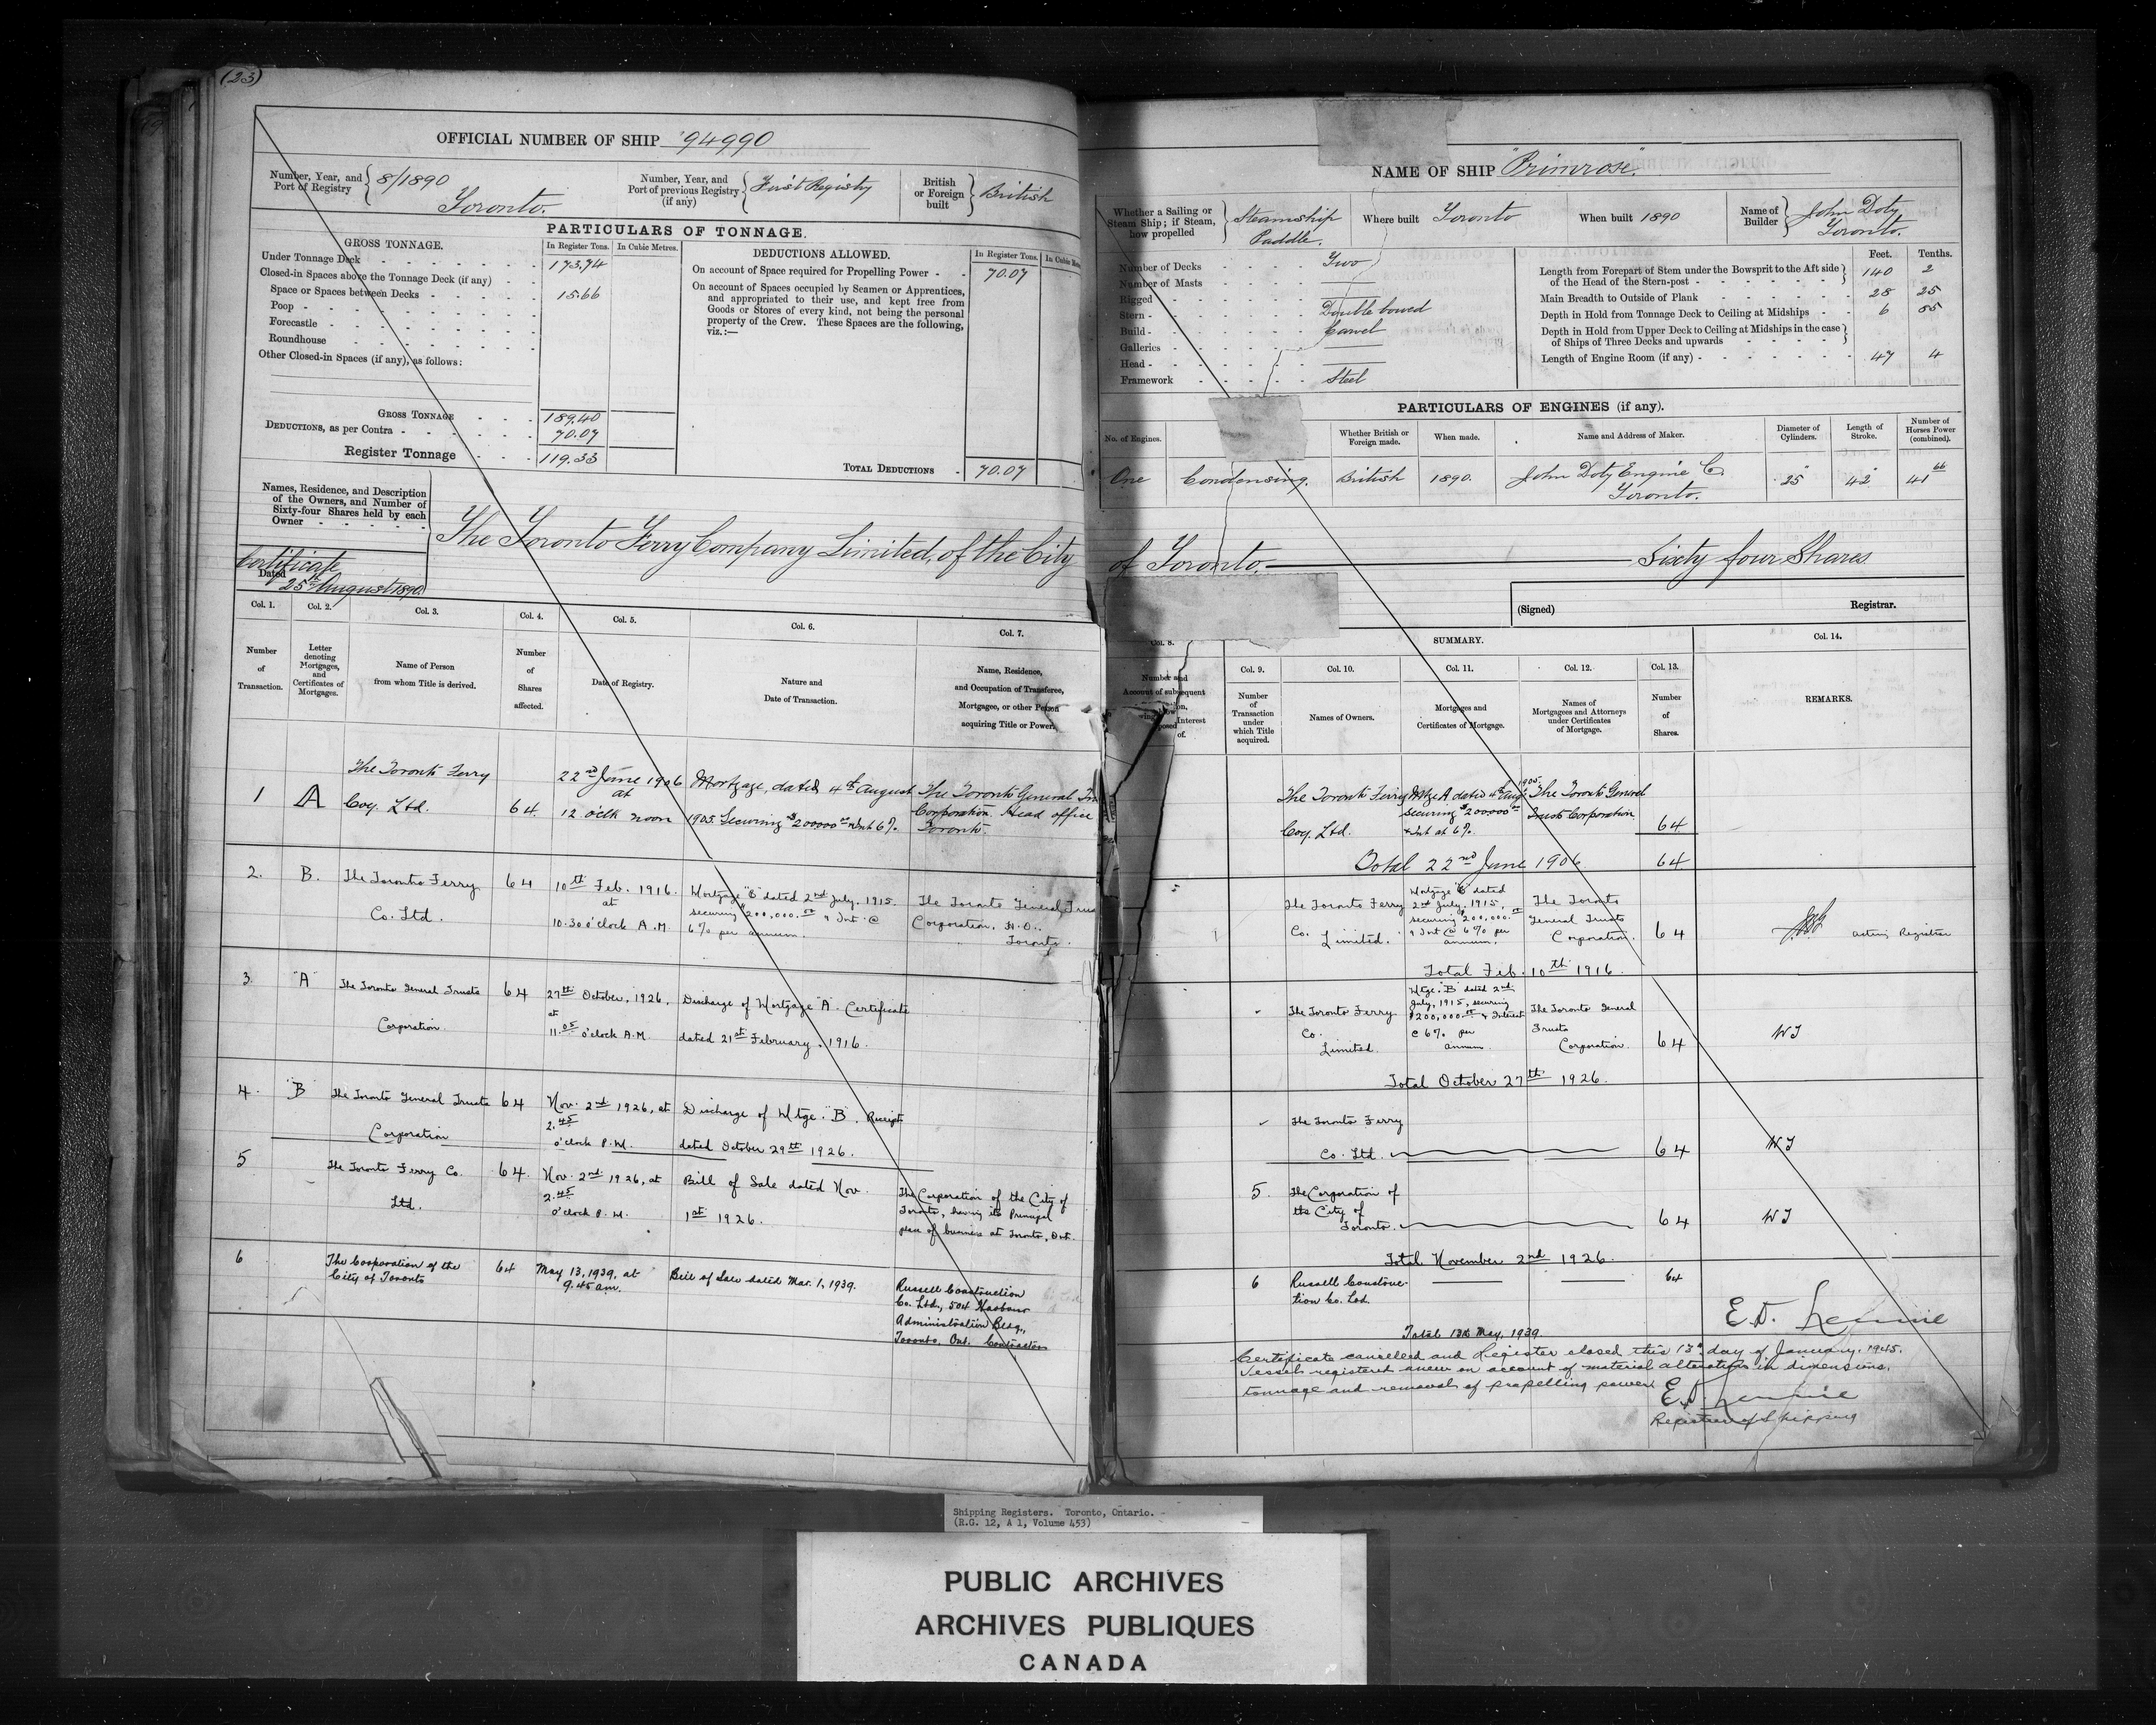 (23)
OFFICIAL NUMBER OF SHIP 94990
Number, Year, and Port of Registry 8/1890 Toronto.
Number, Year, and Port of previous Registry (if any) First Registry
British or Foreign built British
PARTICULARS OF TONNAGE.
GROSS TONNAGE. In Register Tons. In Cubic Metres.
Under Tonnage Deck 173.74
Closed-in Spaces above the Tonnage Deck (if any)
Space or Spaces between Decks 15.66
Poop
Forecastle
Roundhouse
Other Closed-in Spaces (if any), as follows:
GROSS TONNAGE 189.40
DEDUCTIONS, as per Contra 70.07
Register Tonnage 119.33
DEDUCTIONS ALLOWED. In Register Tons.
On account of Space required for Propelling Power 70.07
On account of Spaces occupied by Seamen or Apprentices,
and appropriated to their use, and kept free from
Goods or Stores of every kind, not being the personal
property of the Crew. These Spaces are the following,
viz.:—
TOTAL DEDUCTIONS 70.07
Names, Residence, and Description
of the Owners, and Number of
Sixty-four Shares held by each
Owner
The Toronto Ferry Company Limited, of the City
Certificate
Dated 25th August 1890
Col. 1. Col. 2. Col. 3. Col. 4. Col. 5. Col. 6. Col. 7.
Number of Transaction.
Letter denoting Mortgages, and Certificates of Mortgages.
Name of Person from whom Title is derived.
Number of Shares affected.
Date of Registry.
Nature and Date of Transaction.
Name, Residence, and Occupation of Transferee, Mortgagee, or other Person acquiring Title or Power.
1 A The Toronto Ferry Coy. Ltd. 64 22nd June 1906 at 12 o'clk noon Mortgage, dated 4th August 1905 Securing $200000 00 & Int 6% The Toronto General Corporation. Head office Toronto.
2. B. The Toronto Ferry Co. Ltd. 64 10th Feb. 1916. at 10.30 o'clock A.M. Mortgage "B" dated 2nd July, 1915. securing $200,000.00 & Int @ 6% per annum. The Toronto General Corporation, H.O., Toronto.
3. "A" The Toronto General Trusts Corporation. 64 27th October, 1926, at 11.05 o'clock A.M. Discharge of Mortgage "A". Certificate dated 21st February, 1916.
4. "B" The Toronto General Trusts Corporation 64 Nov. 2nd 1926, at 2.45 o'clock P.M. Discharge of Mtge. "B". Receipt dated October 29th 1926.
5 The Toronto Ferry Co. Ltd. 64. Nov. 2nd 1926, at 2.45 o'clock P.M. Bill of Sale dated Nov. 1st 1926. The Corporation of the City of Toronto, having its Principal place of business at Toronto, Ont.
6 The Corporation of the City of Toronto 64 May 13, 1939, at 9.45 am. Bill of Sale dated Mar. 1, 1939. Russell Construction Co. Ltd., 504 Harbour Administration Bldg., Toronto, Ont. Contractors
NAME OF SHIP "Primrose".
Whether a Sailing or Steam Ship; if Steam, how propelled Steamship Paddle.
Where built Toronto
When built 1890
Name of Builder John Doty Toronto.
Number of Decks Two
Number of Masts
Rigged
Stern Double bowed
Build Carvel
Galleries
Head
Framework Steel
Feet. Tenths.
Length from Forepart of Stem under the Bowsprit to the Aft side of the Head of the Stern-post 140 2
Main Breadth to Outside of Plank 28 25
Depth in Hold from Tonnage Deck to Ceiling at Midships 6 85
Depth in Hold from Upper Deck to Ceiling at Midships in the case of Ships of Three Decks and upwards
Length of Engine Room (if any) 47 4
PARTICULARS OF ENGINES (if any).
No. of Engines. Whether British or Foreign made. When made. Name and Address of Maker. Diameter of Cylinders. Length of Stroke. Number of Horses Power (combined).
One Condensing. British 1890. John Doty Engine Co. Toronto. 25" 42" 41 66
of Toronto. Sixty four Shares
(Signed) Registrar.
Col. 8. SUMMARY. Col. 14.
Col. 9. Col. 10. Col. 11. Col. 12. Col. 13.
Number of Transaction under which Title acquired.
Names of Owners.
Mortgages and Certificates of Mortgage.
Names of Mortgagees and Attorneys under Certificates of Mortgage.
Number of Shares.
REMARKS.
The Toronto Ferry Coy. Ltd. Mtge A dated 4th Aug 1905. securing $200000 00 & Int at 6%. The Toronto General Trusts Corporation 64
Total 22nd June 1906 64
The Toronto Ferry Co. Limited. Mortgage "B" dated 2nd July, 1915, securing $200,000.00 & Int @ 6% per annum. The Toronto General Trusts Corporation. 64 Acting Registrar
Total Feb. 10th 1916.
The Toronto Ferry Co. Limited. Mtge. "B" dated 2nd July, 1915, securing $200,000.00 & Interest @ 6% per annum. The Toronto General Trusts Corporation. 64 WJ
Total October 27th 1926.
The Toronto Ferry Co. Ltd. 64 WJ
5. The Corporation of the City of Toronto. 64 WJ
Total November 2nd 1926.
6 Russell Construc-
tion Co. Ltd. 64
Total 13th May, 1939.
Certificate cancelled and Register closed this 13th day of January, 1945.
Vessel registered anew on account of material alteration in dimensions,
tonnage and removal of propelling power.
Registrar of Shipping
Shipping Registers. Toronto, Ontario.
(R.G. 12, A 1, Volume 453)
PUBLIC ARCHIVES
ARCHIVES PUBLIQUES
CANADA